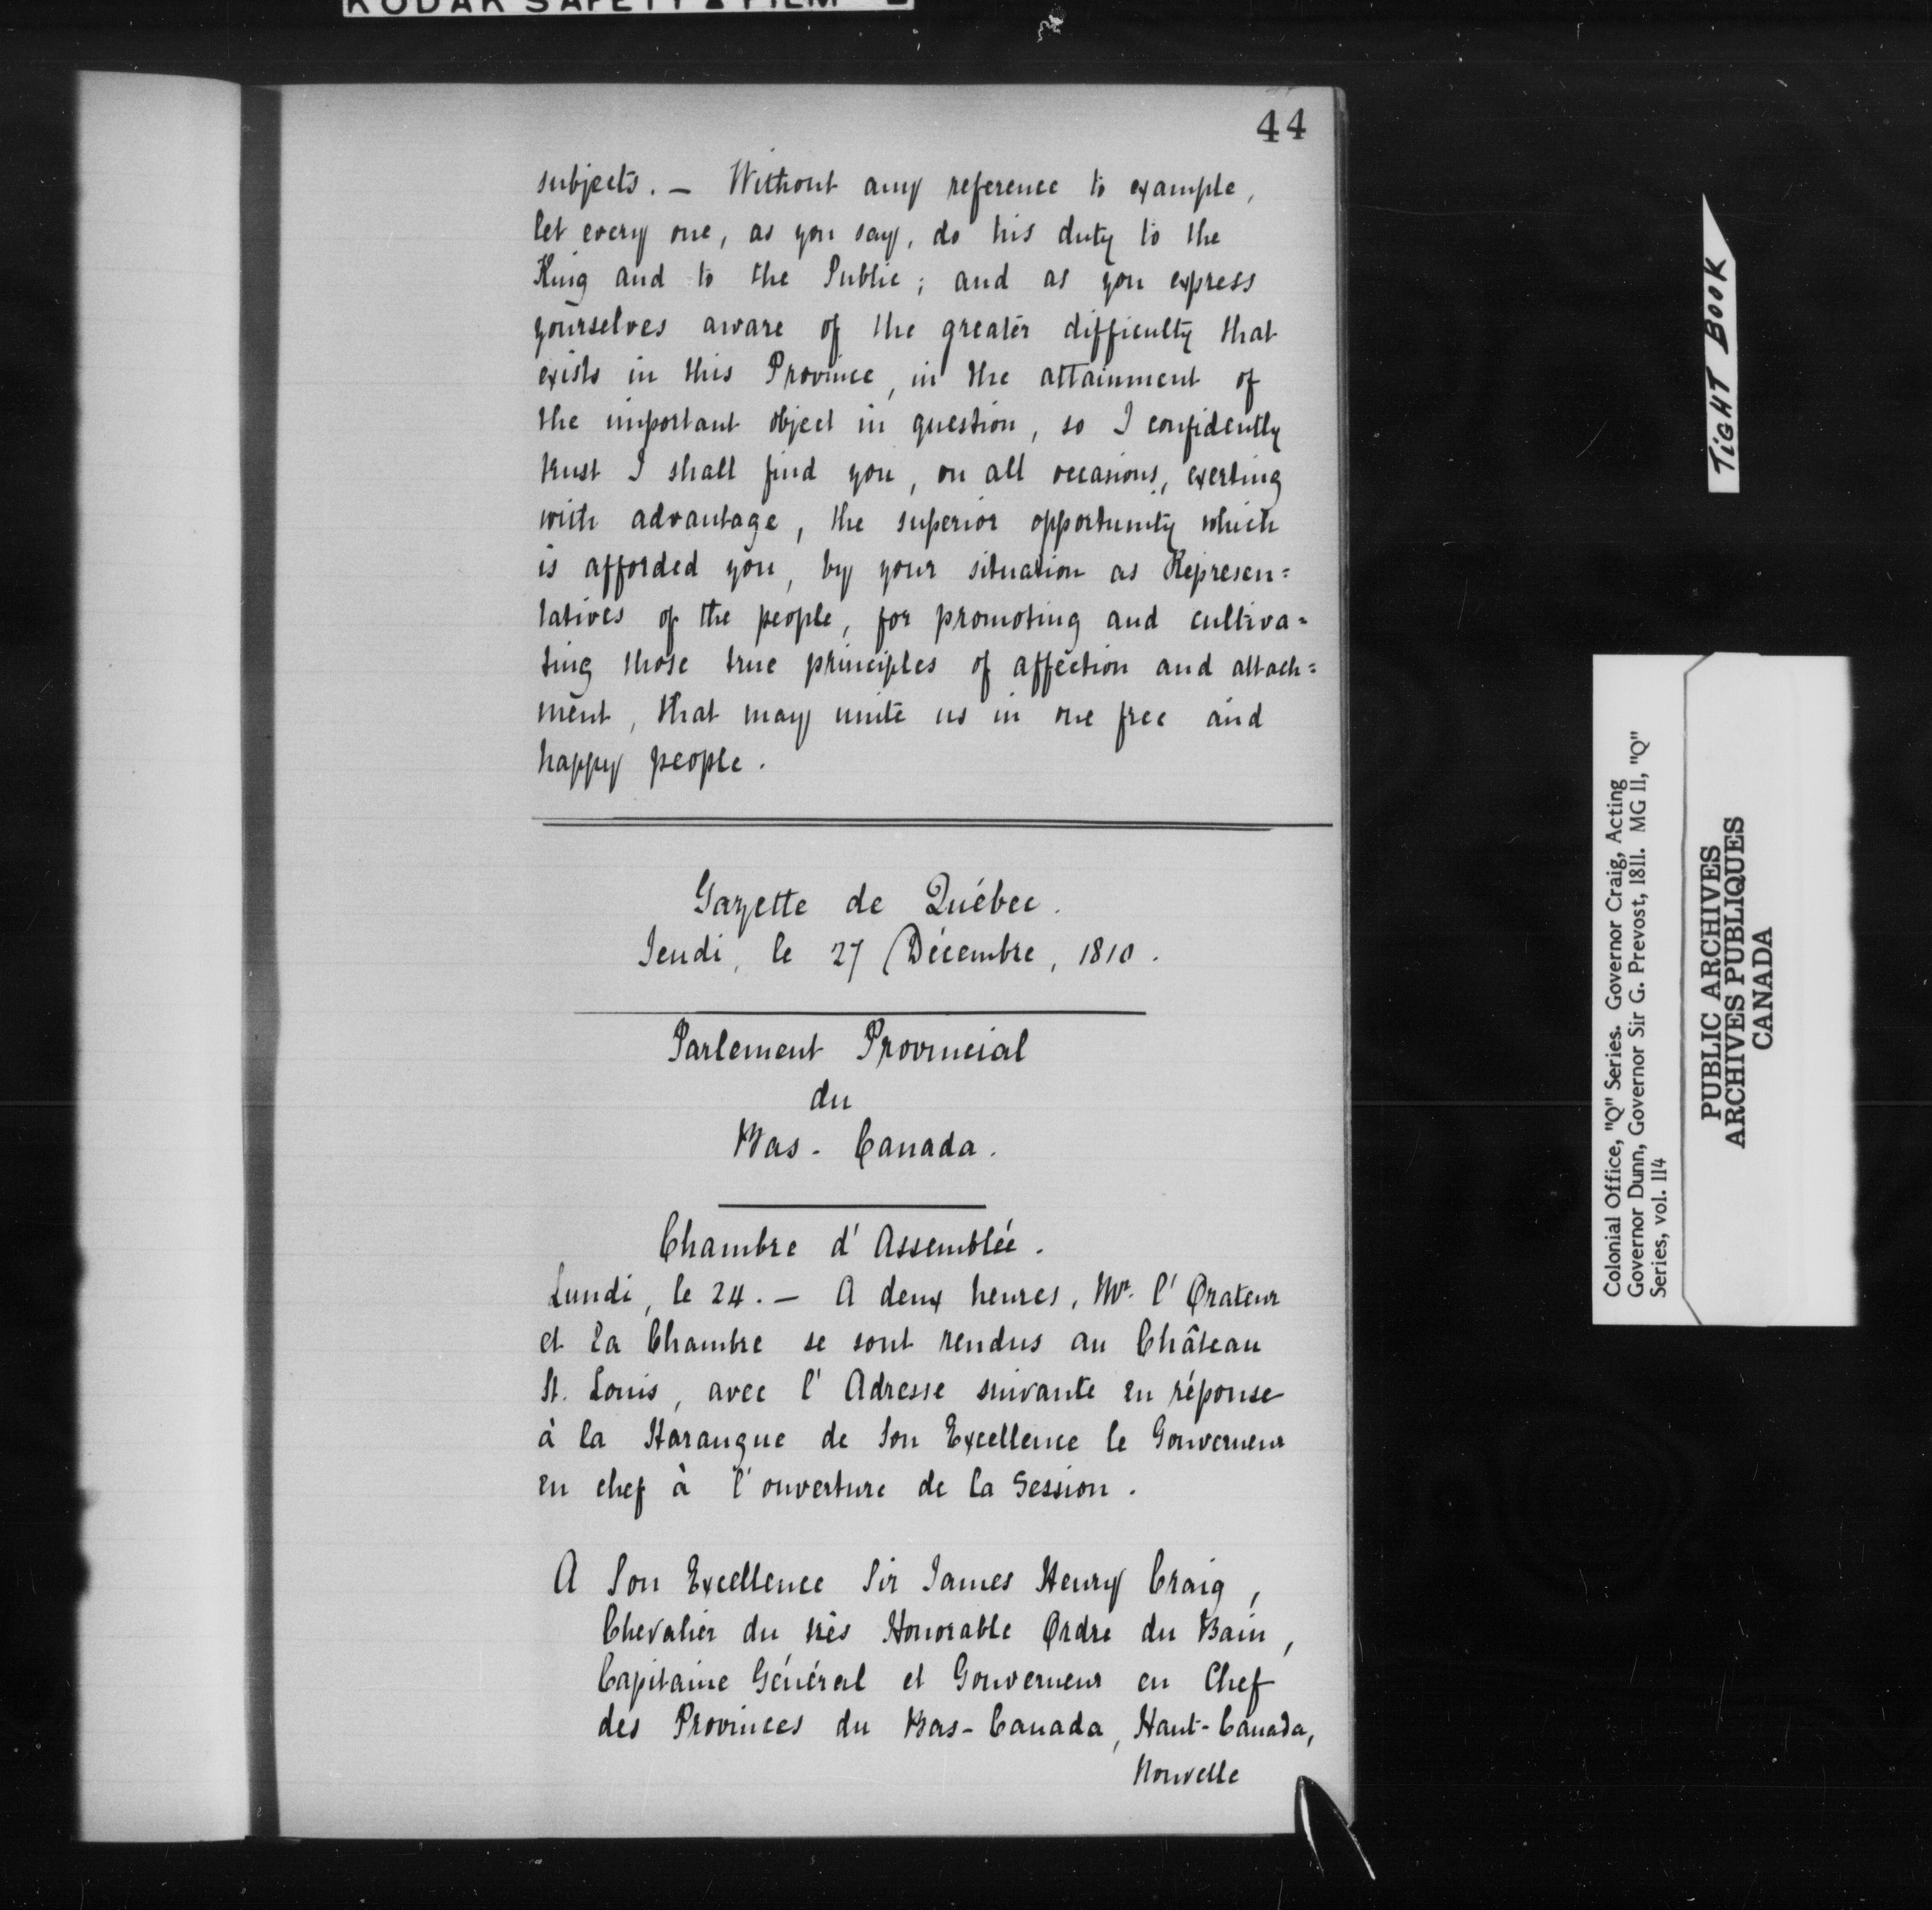 KODAK SAFETY FILM
44
subjects. — Without any reference to example,
let every one, as you say, do his duty to the
King and to the Public; and as you express
yourselves aware of the greater difficulty that
exists in this Province, in the attainment of
the important object in question, so I confidently
trust I shall find you, on all occasions, exerting
with advantage, the superior opportunity which
is afforded you, by your situation as Represen=
tatives of the people, for promoting and cultiva=
ting those true principles of affection and attach=
ment, that may unite us in one free and
happy people.
Gazette de Québec.
Jeudi, le 27 Décembre, 1810.
Parlement Provincial
du
Bas-Canada.
Chambre d'Assemblée.
Lundi, le 24. — A deux heures, Mr. l'Orateur
et la Chambre se sont rendus au Château
St. Louis, avec l'Adresse suivante en réponse
à la Harangue de Son Excellence le Gouverneur
en chef à l'ouverture de la Session.
A Son Excellence Sir James Henry Craig,
Chevalier du très Honorable Ordre du Bain,
Capitaine Général et Gouverneur en Chef
des Provinces du Bas-Canada, Haut-Canada,
Nouvelle
TIGHT BOOK
Colonial Office, "Q" Series. Governor Craig, Acting
Governor Dunn, Governor Sir G. Prevost, 1811. MG 11, "Q"
Series, vol. 114
PUBLIC ARCHIVES
ARCHIVES PUBLIQUES
CANADA